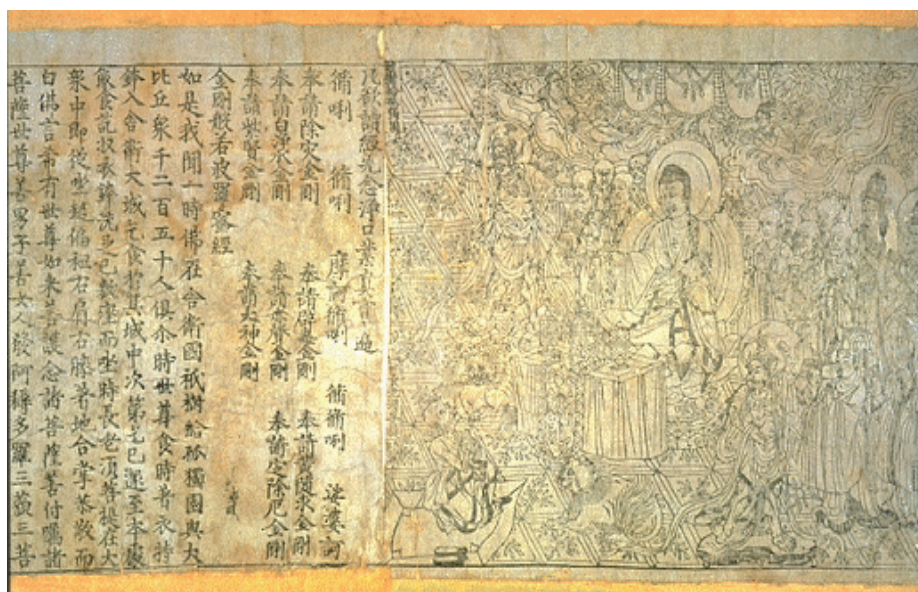 凡欲讀經先念淨口業真言一遍
脩唎 脩唎 摩訶脩唎 脩脩唎 娑婆訶
奉請除灾金剛 奉請辟毒金剛 奉請黃随求金剛
奉請白淨水金剛 奉請赤聲金剛 奉請定除厄金剛
奉請紫賢金剛 奉請大神金剛
金剛般若波羅蜜經
如是我聞一時佛在舍衛國祇樹給孤獨園與大
比丘衆千二百五十人俱尒時世尊食時著衣持
鉢入舍衛大城乞食於其城中次第乞已還至本處
飯食訖收衣鉢洗足已敷座而坐時長老須菩提在大
衆中即從坐起偏袒右肩右膝著地合掌恭敬而
白佛言希有世尊如来善護念諸菩薩善付囑諸
菩薩世尊善男子善女人發阿耨多羅三藐三菩